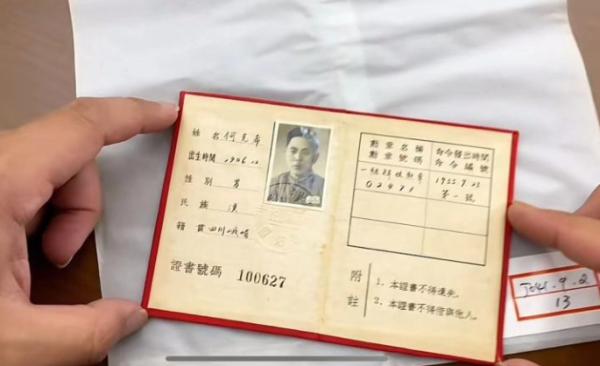 姓名 何克希
出生時間 1906.
性别 男
民族 漢
籍貫 四川峨嵋
證書號碼 100627
勳章名稱
勳章號碼
命令發出時間
命令編號
一級解放勳章
02421
1955.9.23
第一號
附註
1. 本證書不得遺失。
2. 本證書不得借與他人。
13